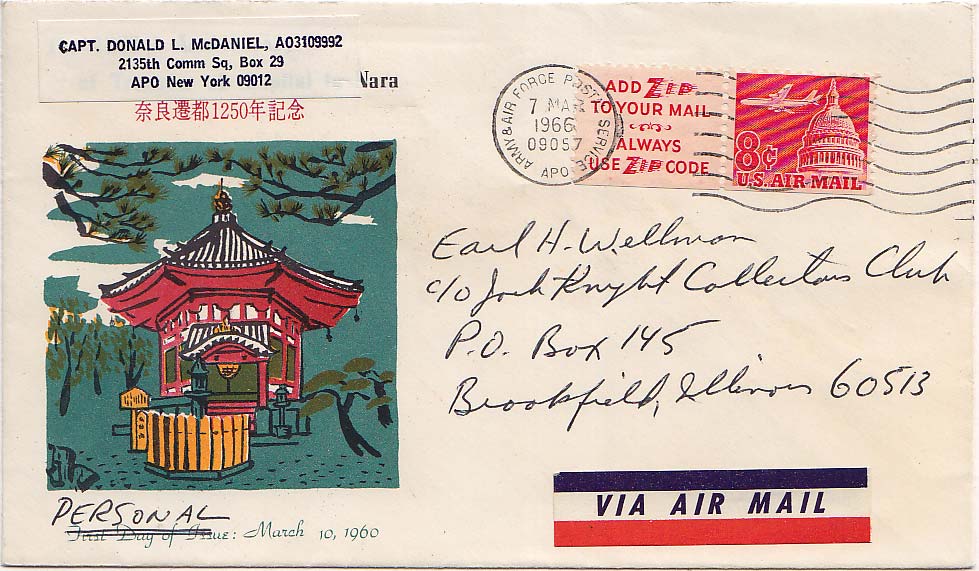 CAPT. DONALD L. McDANIEL, AO3109992
2135th Comm Sq, Box 29
APO New York 09012
Nara
奈良遷都1250年記念
ARMY & AIR FORCE POSTAL SERVICE
7 MAR
1966
09057
APO
ADD ZIP
TO YOUR MAIL
ALWAYS
USE ZIP CODE
8¢
U.S. AIR MAIL
Earl H. Wellman
c/o Jack Knight Collectors Club
P.O. Box 145
Brookfield, Illinois 60513
VIA AIR MAIL
PERSONAL
First Day of Issue: March 10, 1960